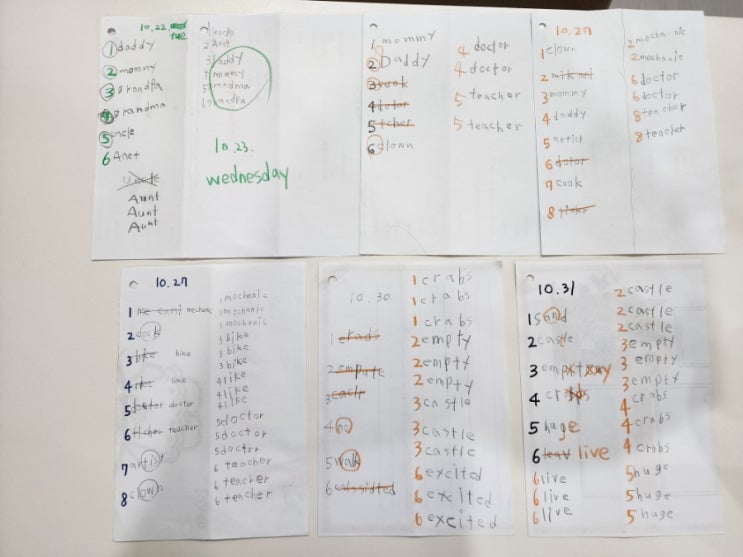 10.22.
tue
1 daddy
2 mommy
3 grandpa
4 grandma
5 uncle
6 Anet
uncle
Aunt
Aunt
Aunt
1 uncle
2 Aunt
3 daddy
4 mommy
5 grandma
6 grandpa
10.23.
wednesday
1 mommy
2 Daddy
3 cook
4 dotor
5 tcher
6 clown
4 doctor
4 doctor
5 teacher
5 teacher
10.27
1 clown
2
3 mommy
4 daddy
5 artist
6 dotor
7 cook
8
2 mechanic
2 mechanic
6 doctor
6 doctor
8 teacher
8 teacher
10.27
1 mechanic
2 cook
3 bike bike
4 like
5 doctor
6 ticher teacher
7 artist
8 clown
1 mechanic
1 mechanic
1 mechanic
3 bike
3 bike
3 bike
4 like
4 like
4 like
5 doctor
5 doctor
5 doctor
6 teacher
6 teacher
6 teacher
10.30
1 crads
2 empute
3
4
5 walk
6
1 crabs
1 crabs
1 crabs
2 empty
2 empty
2 empty
3 castle
3 castle
3 castle
6 excited
6 excited
6 excited
10.31
1 sand
2 castle
3
4
5 huge
6 leav live
6 live
6 live
6 live
2 castle
2 castle
2 castle
3 empty
3 empty
3 empty
4 crabs
4 crabs
4 crabs
5 huge
5 huge
5 huge